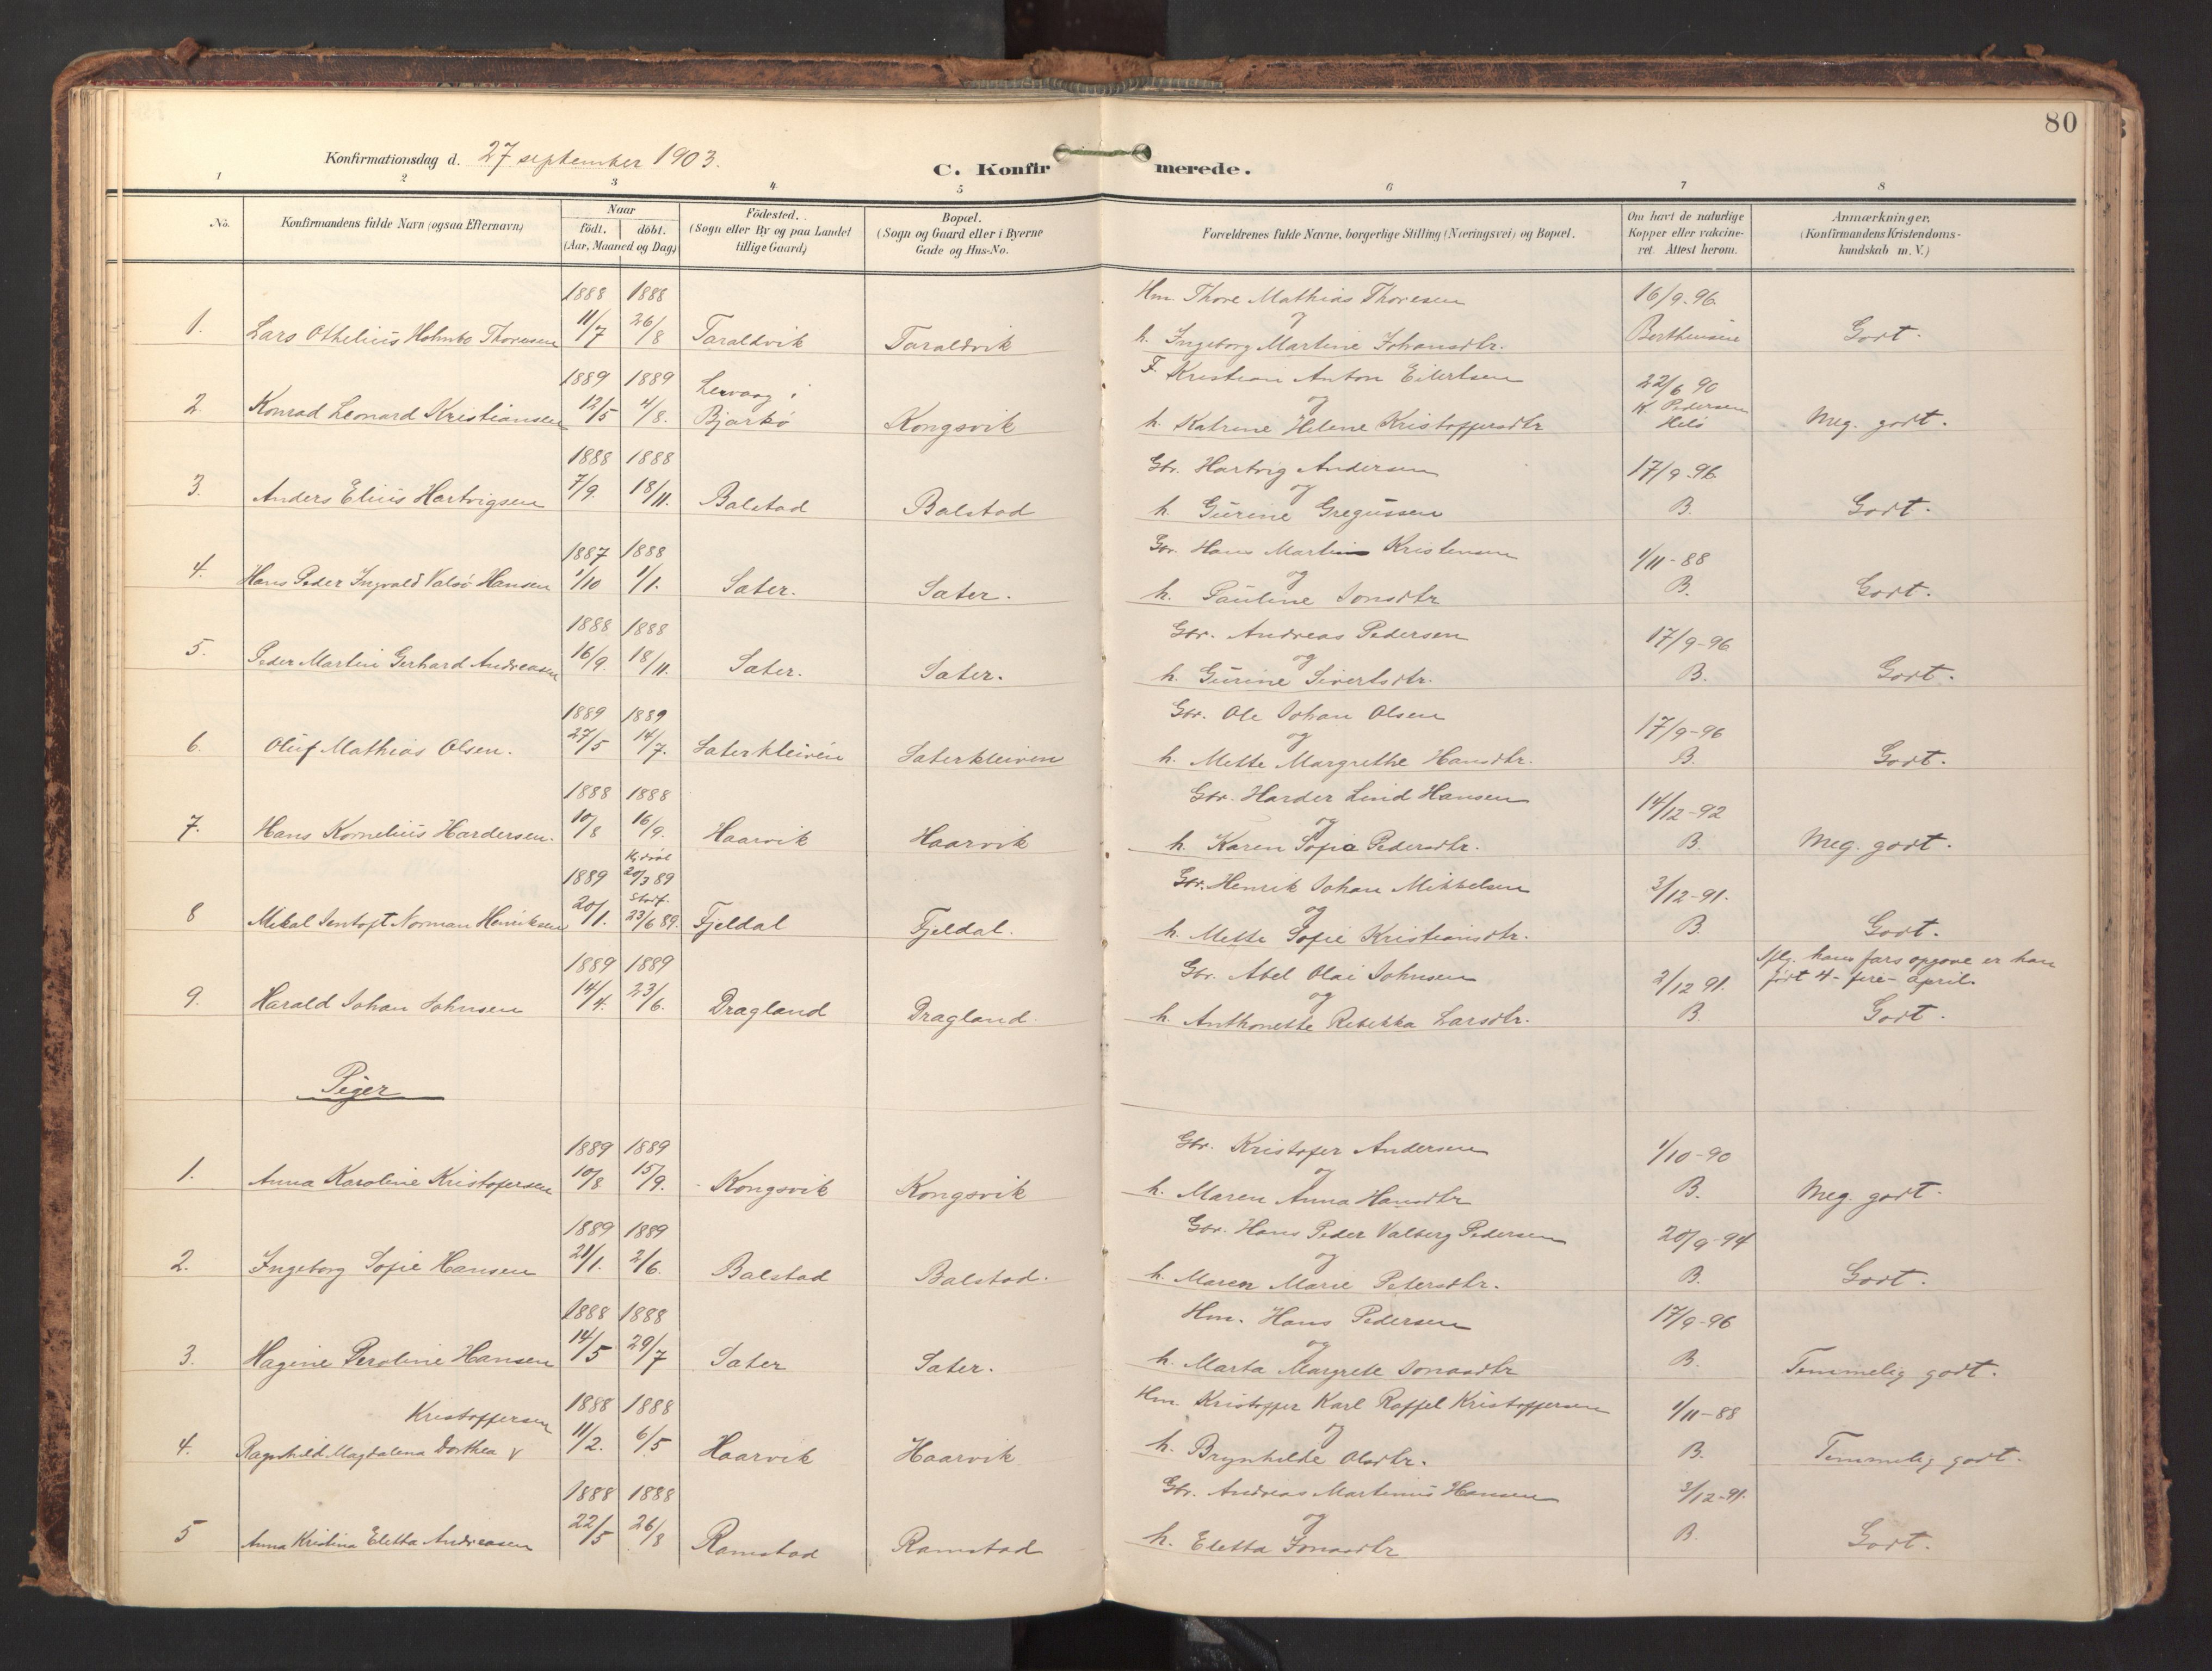 80
Konfirmationsdag d. 27 september 1903.
C. Konfirmerede.
1 2 3 4 5 6 7 8
No. Konfirmandens fulde Navn (ogsaa Efternavn) Naar födt. döbt. (Aar, Maaned og Dag) Födested. (Sogn eller By og paa Landet tillige Gaard) Bopæl. (Sogn og Gaard eller i Byerne Gade og Hus-No. Forældrenes fulde Navne, borgerlige Stilling (Næringsvei) og Bopæl. Om havt de naturlige Kopper eller vakcineret. Attest herom. Anmærkninger. (Konfirmandens Kristendomskundskab m. V.)
1888 1888 Hm. Thore Mathias Thoresen 16/9-96
og
1. Lars Othelius Holmbo Thoresen 11/7 26/8 Taraldvik Taraldvik h. Ingeborg Martine Johansdtr. Berthensen Godt.
1889 1889 Lervaag i F. Kristian Anton Eilertsen 22/6 90
og K. Pedersen
2. Konrad Leonard Kristiansen 12/5 4/8. Bjarkö Kongsvik h. Katrine Helene Kristoffersdtr Helö Meg. godt.
1888 1888 Gbr. Hartvig Andersen 17/9-96
og
3. Anders Elius Hartvigsen 7/9. 18/11. Balstad Balstad h. Gurine Gregussen B. Godt.
1887 1888 Gbr. Hans Martin Kristensen 1/11-88
og
4. Hans Peder Ingvald Valsö Hansen 1/10 1/1. Sater. Sater. h. Pauline Jonsdtr B. Godt.
1888 1888 Gbr. Andreas Pedersen 17/9-96
og
5. Peder Martin Gerhard Andreasen 16/9. 18/11. Sater. Sater. h. Gurine Sivertsdtr. B. Godt.
1889 1889 Gbr. Ole Johan Olsen 17/9-96
og
6. Oluf Mathias Olsen. 27/5 14/7. Saterkleiven Saterkleiven h. Mette Margrethe Hansdtr. B. Godt.
1888 1888 Gbr. Harder Lind Hansen 14/12-92
og
7. Hans Kornelius Hardersen. 10/8 16/9. Haarvik Haarvik h. Karen Sofie Pedersdtr. B. Meg. godt.
1889 Hjdöbt 20/3 89 Gbr. Henrik Johan Mikkelsen 3/12-91.
Stadf. og
8 Mikal Sentoft Norman Henriksen 20/1. 23/6 89. Fjeldal Fjeldal. h. Mette Sofie Kristiansdtr. B. Godt.
1889 1889 Gbr. Abel Olai Johnsen 2/12 91. Iflg. hans fars opgave er han
og født 4- fire- april.
9. Harald Johan Johnsen 14/4. 23/6. Dragland Dragland. h. Anthonette Rebekka Larsdtr. B. Godt.
Piger
1889 1889 Gbr. Kristofer Andersen 1/10-90
og
1. Anna Karoline Kristofersen 10/8 15/9. Kongsvik Kongsvik h. Maren Anna Hansdtr B. Meg. godt.
1889 1889 Gbr. Hans Peder Valberg Pedersen 20/9-94
og
2. Ingeborg Sofie Hansen 21/1. 2/6. Balstad Balstad. h. Maren Marie Petersdtr. B. Godt.
1888 1888 Hm. Hans Pedersen 17/9-96
og
3. Hagine Peroline Hansen 14/5 29/7 Sater Sater. h. Marta Margrete Jonasdtr B. Temmelig godt.
Kristoffersen 1888 1888 Hm. Kristoffer Karl Roffel Kristoffersen 1/11-88
og
4. Ragnhild Magdalena Dorthea v 11/2. 6/5 Haarvik Haarvik h. Brynhilde Olsdtr. B. Temmelig godt.
1888 1888 Gbr. Andreas Martinus Hansen 3/12-91.
og
5 Anna Kristina Eletta Andreasen 22/5 26/8 Ramstad Ramstad h. Eletta Jonasdtr B. Godt.